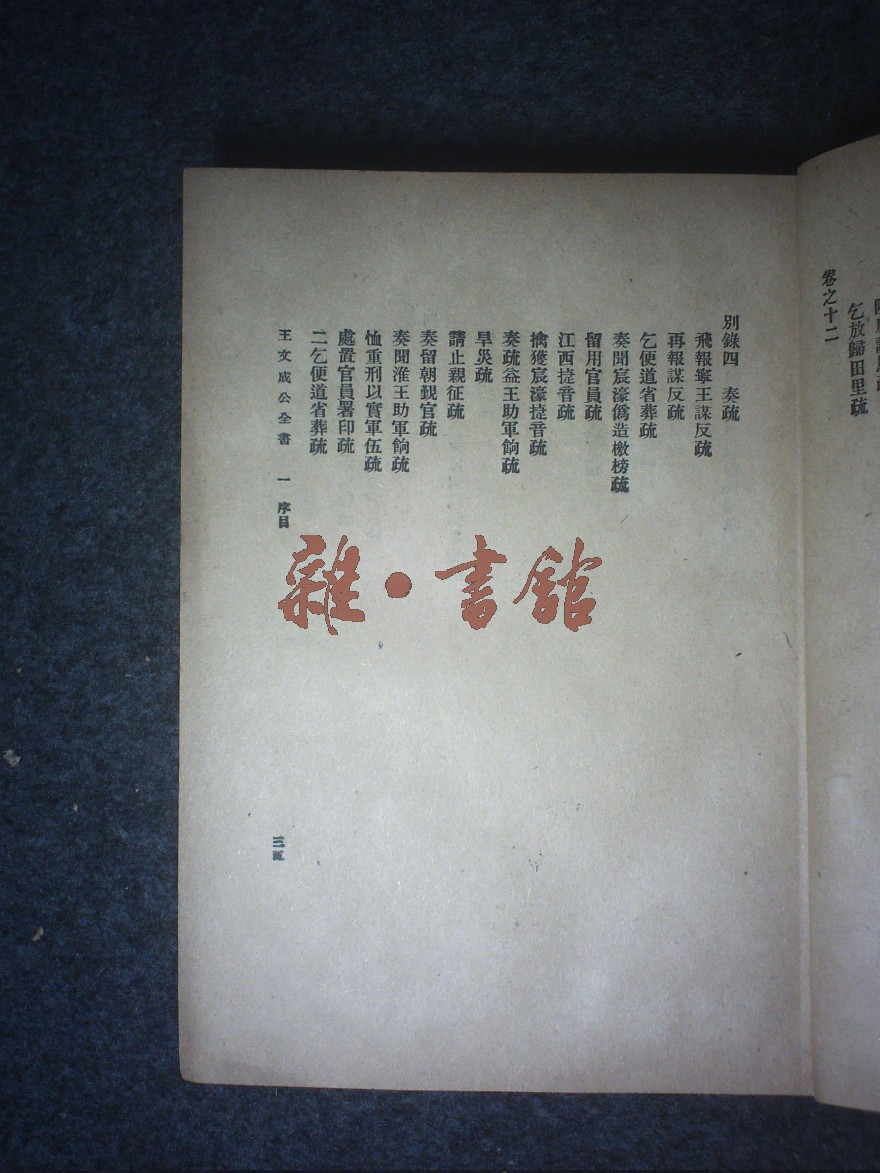 乞放歸田里疏
卷之十二
別錄四　奏疏
飛報寧王謀反疏
再報謀反疏
乞便道省葬疏
奏聞宸濠僞造檄榜疏
留用官員疏
江西捷音疏
擒獲宸濠捷音疏
奏疏益王助軍餉疏
旱災疏
請止親征疏
奏留朝覲官疏
奏聞淮王助軍餉疏
恤重刑以實軍伍疏
處置官員署印疏
二乞便道省葬疏
王文成公全書　一　序目
雜・書館